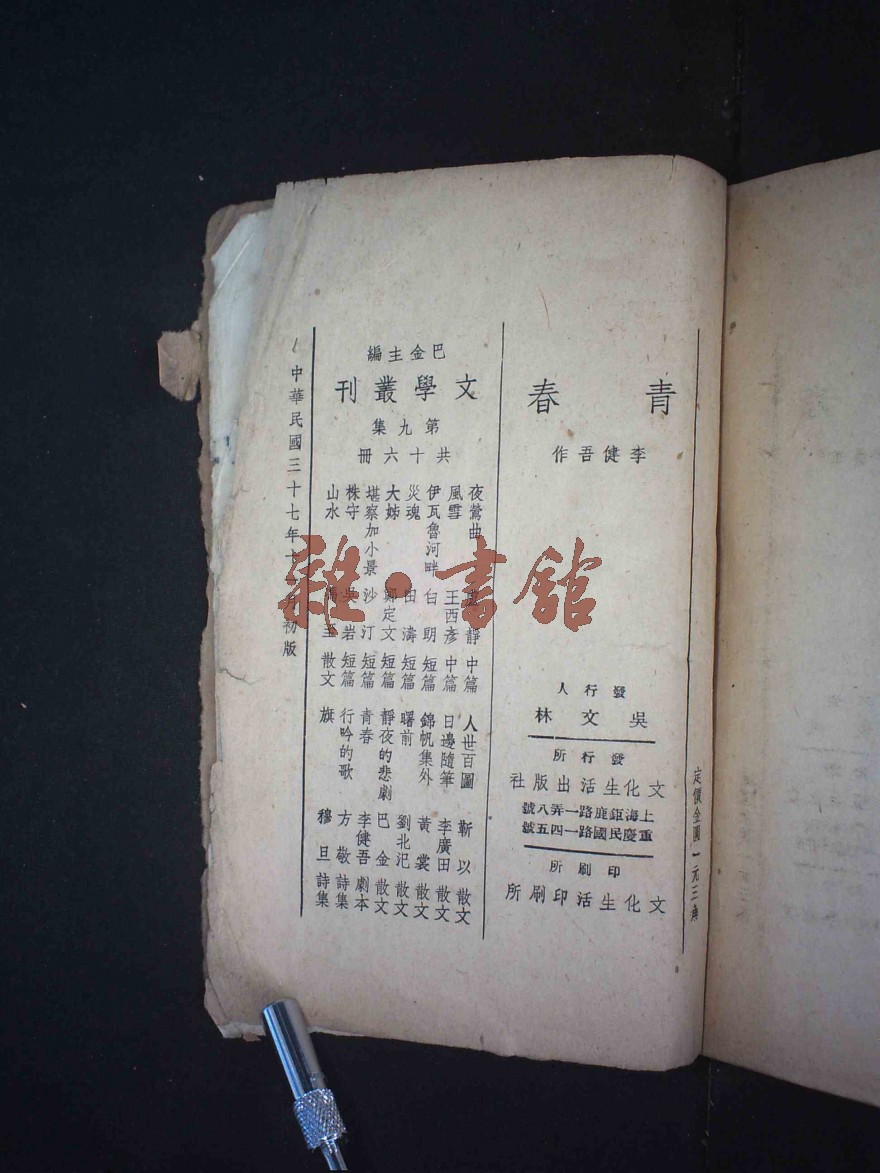 定價金圓一元三角
青春
李健吾作
發行人
吳文林
發行所
文化生活出版社
上海鉅鹿路一弄八號
重慶民國路一四五號
印刷所
文化生活印刷所
巴金主編
文學叢刊
第九集
共十六冊
夜鶯曲 靜 中篇
風雪 王西彥 中篇
伊瓦魯河畔 白朗 短篇
災魂 田濤 短篇
大姊 鄭定文 短篇
堪察加小景 沙汀 短篇
株守 吳岩 短篇
山水 馮至 散文
人世百圖 靳以 散文
日邊隨筆 李廣田 散文
錦帆集外 黃裳 散文
曙前 劉北汜 散文
靜夜的悲劇 巴金 散文
青春 李健吾 劇本
行吟的歌 方敬 詩集
旗 穆旦 詩集
中華民國三十七年十一月初版
雜·書館